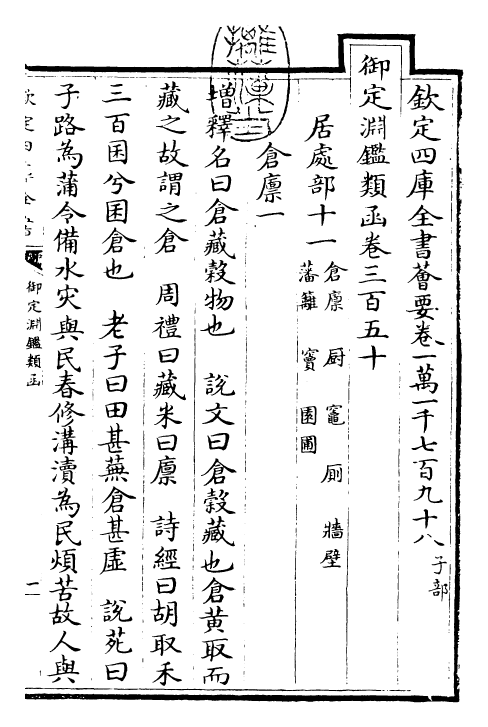 欽定四庫全書薈要卷一萬一千七百九十八 子部
御定淵鑑類函卷三百五十
居處部十一 倉廪 厨 竈 厠 牆壁
藩籬 竇 園圃
倉廪一
增釋名曰倉藏穀物也 說文曰倉穀藏也倉黄取而
藏之故謂之倉 周禮曰藏米曰廪 詩經曰胡取禾
三百囷兮囷倉也 老子曰田甚蕪倉甚虛 說苑曰
子路為蒲令備水灾與民春修溝瀆為民煩苦故人與
御定淵鑑類函